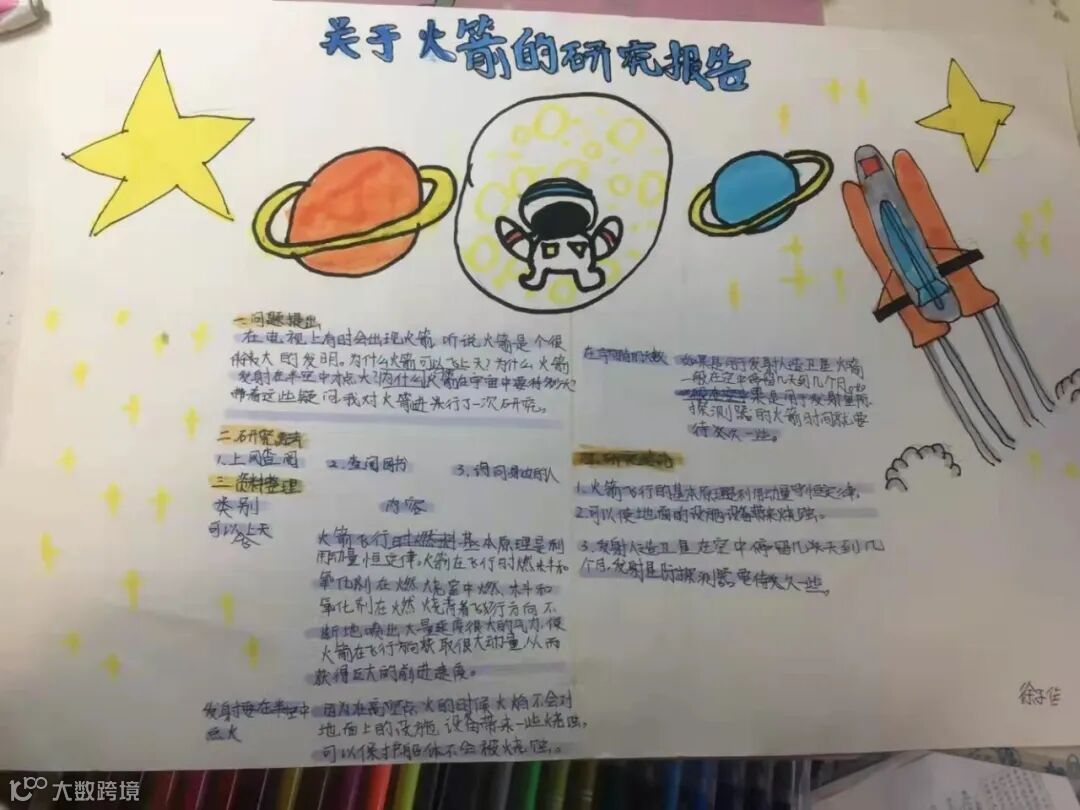 关于火箭的研究报告
一.问题提出
在电视上有时会出现火箭,听说火箭是个很
伟大的发明。为什么火箭可以飞上天?为什么火箭
发射在半空中才点火?为什么火箭在宇宙中要待
带着这些疑问,我对火箭进行了一次研究。
二.研究方法
1.上网查阅 2.查阅图书 3.询问身边的人
三.资料整理
类别 内容
可以上天
火箭飞行时燃料基本原理是利
用动量恒定律,火箭在飞行时燃料和
氧化剂在燃烧室中燃,料和
氧化剂在燃烧着飞行方向不
断地喷出大量速度很大的气力,使
火箭在飞行方向获取很大动量,从而
获得巨大的前进速度。
发射要在半空中
点火
因为在高空点火的时候火焰不会对
地面上的设施,设备带来一些烧蚀,
可以保护船体不会被烧蚀。
在宇宙的天数
如果是用于发射人造卫星火箭
一般在空中停留几天到几个月。
果是用于发射星际
探测器的火箭时间就要
待久一些。
四.研究结论
1.火箭飞行的基本原理是利用动量守恒定律。
2.可以使地面的设施设备带来烧蚀。
3.发射人造卫星在空中停留几天到几
个月,发射星际探测器要待久一些。
徐子佳
大数跨境